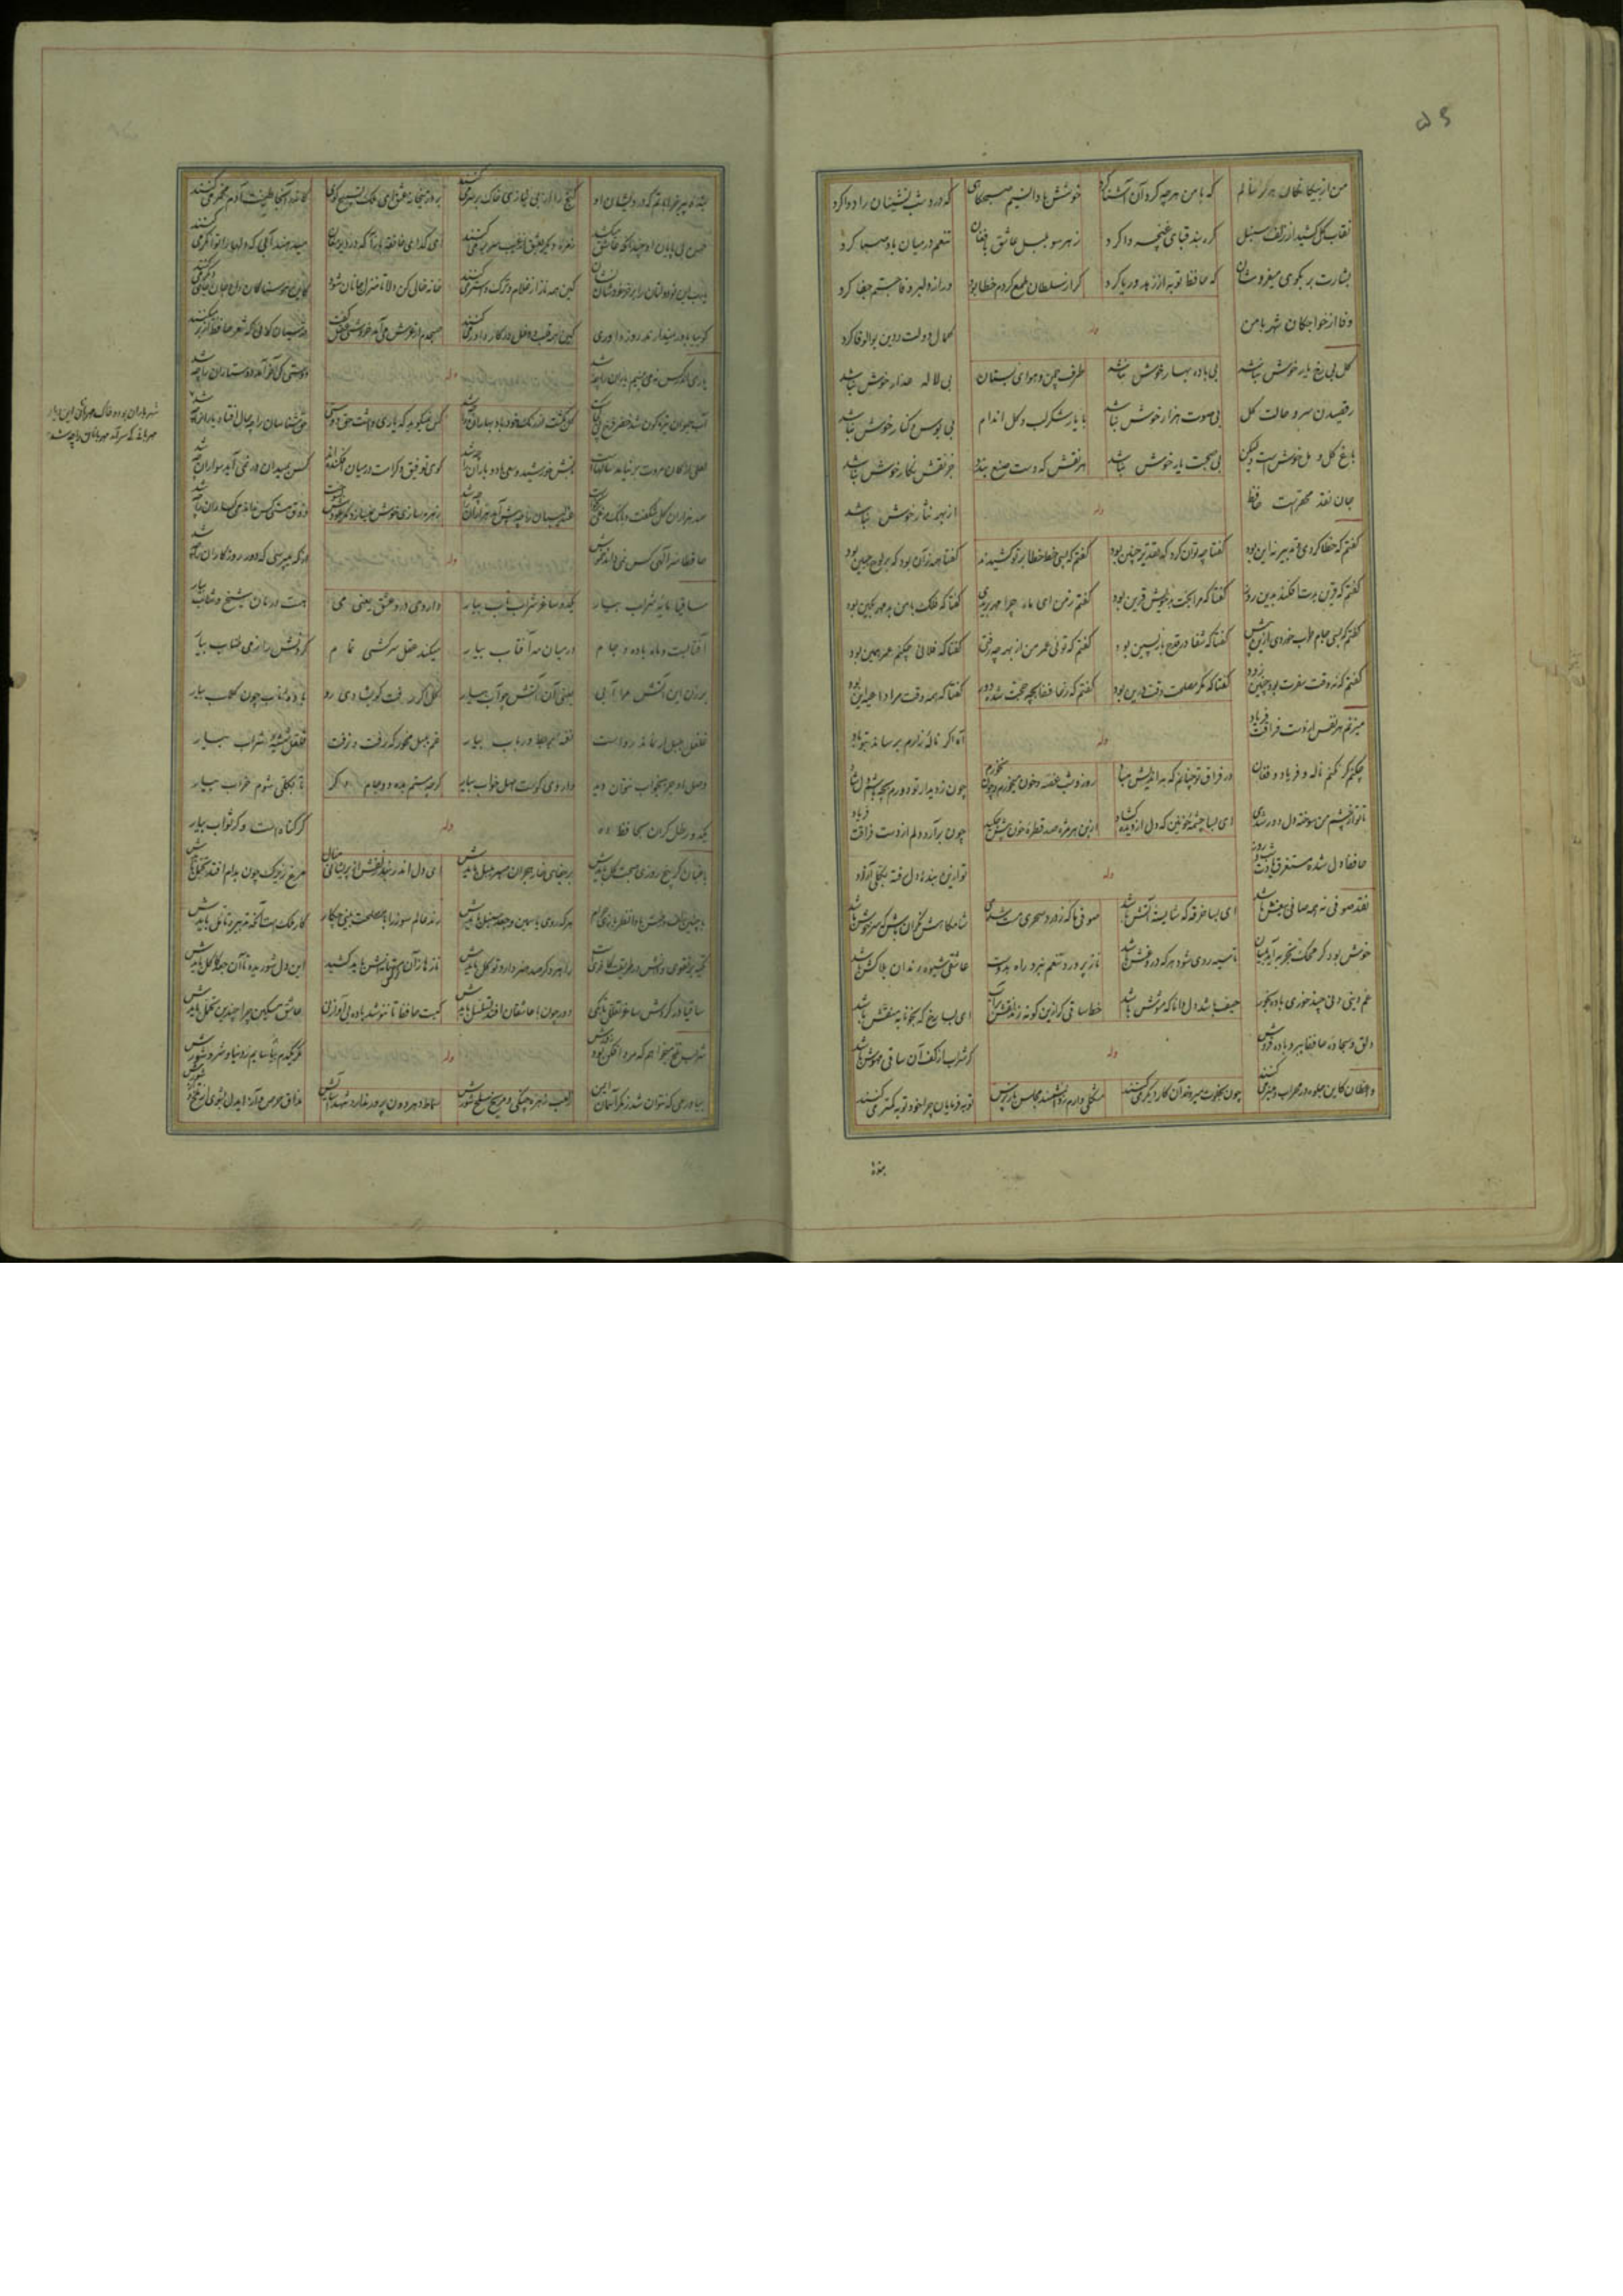 ۵۶
من از بیگانگان هرگز ننالم که با من هرچه کرد آن آشنا کرد خوشش باد آن نسیم صبحگاهی که درد شب نشینان را دوا کرد
نقاب گل کشید از زلف سنبل گره بند قبای غنچه وا کرد ز هر سو بلبل عاشق بافغان تنعم در میان باد صبا کرد
بشارت بر بکوی میفروشان که حافظ توبه از زهد و ریا کرد گر از سلطان طمع کردم خطا بود ور از دلبر وفا جستم جفا کرد
وفا از خواجکان شهر با من کمال دولت و دین بوالوفا کرد
وله
گل بی رخ یار خوش نباشد بی باده بهار خوش نباشد طرف چمن و هوای بستان بی لاله عذار خوش نباشد
رقصیدن سرو و حالت گل بی صوت هزار خوش نباشد با یار شکر لب و گل اندام بی بوس و کنار خوش نباشد
باغ گل و مل خوش است لیکن بی صحبت یار خوش نباشد هر نقش که دست صنع بندد جز نقش نگار خوش نباشد
جان نقد محقرست حافظ از بهر نثار خوش نباشد
وله
گفتم که خطا کردی و تدبیر نه این بود گفتا چه توان کرد که تقدیر چنین بود گفتم که بسی خط خطا بر تو کشیدند گفتا همه آن بود که بر لوح جبین بود
گفتم که قرین بدت افکند بدین روز گفتا که مرا بخت بد خویش قرین بود گفتم ز من ای ماه چرا مهر بریدی گفتا که فلک با من بد مهر بکین بود
گفتم که بسی جام طرب خوردی ازین پیش گفتا که شفا در قدح بازپسین بود گفتم که تو ئی عمر من از بهر چه رفتی گفتا که فلانی چکنم عمر همین بود
گفتم که نه وقت سفرت بود چنین زود گفتا که مگر مصلحت وقت درین بود گفتم که ز حافظ بچه حجت شده دور گفتا که همه وقت مرا داعیه این بود
میزنم هر نفس از دست فراقت فریاد آه اگر ناله زارم نرساند بتو باد
وله
چکنم گر نکنم ناله و فریاد و فغان در فراق تو چنانم که بداندیش مباد روز و شب غصه و خون میخورم و چون نخورم چون ز دیدار تو دورم بچه باشم دلشاد
تا تو از چشم من سوخته دل دور شدی ای بسا چشمه خونین که دل از دیده گشاد از بن هر مژه صد قطره خون بیش چکد چون برآرد دلم از دست فراقت فریاد
حافظ دل شده مستغرق یادت شب و روز تو ازین بنده دل رفته بکلی آزاد
وله
نقد صوفی نه همه صافی بیغش باشد ای بسا خرقه که شایسته آتش باشد صوفی ما که ز ورد سحری مست شدی شامگاهش نگران باش که سرخوش باشد
خوش بود گر محک تجربه آید بمیان تا سیه روی شود هر که در او غش باشد ناز پرورد تنعم نبرد راه بدوست عاشقی شیوه رندان بلاکش باشد
غم دنیی دنی چند خوری باده بخور حیف باشد دل دانا که مشوش باشد خط ساقی گر ازین گونه زند نقش بر آب ای بسا رخ که بخونابه منقش باشد
دلق و سجاده حافظ ببرد باده فروش گر شراب از کف آن ساقی مهوش باشد
وله
واعظان کاین جلوه در محراب و منبر می کنند چون بخلوت میروند آن کار دیگر می کنند مشکلی دارم ز دانشمند مجلس باز پرس توبه فرمایان چرا خود توبه کمتر می کنند
بنده
بنده پیر خراباتم که درویشان او گنج را از بی نیازی خاک بر سر می کنند بر در میخانه عشق ای ملک تسبیح گوی کاندر آنجا طینت آدم مخمر می کنند
حسن بی پایان او چندانکه عاشق میکشد زمره دیگر بعشق از غیب سر بر می کنند ای گدای خانقه بازآ که در دیر مغان میدهند آبی که دلها را توانگر می کنند
یا رب این نو دولتان را بر خر خودشان نشان کین همه ناز از غلام ترک و استر می کنند خانه خالی کن دلا تا منزل جانان شود
گوییا باور نمیدارند روز داوری کین همه قلب و دغل در کار داور می کنند صبحدم از عرش می آمد خروشی عقل گفت قدسیان گویی که شعر حافظ از بر میکنند
وله
یاری اندر کس نمی بینیم یاران را چه شد دوستی کی آخر آمد دوستداران را چه شد
آب حیوان تیره گون شد خضر فرخ پی کجاست کس نمیگوید که یاری داشت حق دوستی حق شناسان را چه حال افتاد یاران را چه شد
لعلی از کان مروت بر نیامد سالهاست تابش خورشید و سعی باد و باران را چه شد گوی توفیق و کرامت در میان افکنده اند کس بمیدان در نمی آید سواران را چه شد
صد هزاران گل شکفت و بانگ مرغی برنخاست عندلیبان را چه پیش آمد هزاران را چه شد زهره سازی خوش نمیسازد مگر عودش بسوخت کس ندارد ذوق مستی میگساران را چه شد
حافظ اسرار الهی کس نمی داند خموش از که میپرسی که دور روزگاران را چه شد
وله
ساقیا مایه شراب بیار یکدو ساغر شراب ناب بیار داروی درد عشق یعنی می کوست درمان شیخ و شاب بیار
آفتابست و ماه باده و جام در میان مه آفتاب بیار میکند عقل سرکشی تمام گردنش را ز می طناب بیار
بزن این آتش مرا آبی یعنی آن آتش چو آب بیار گل اگر رفت گو بشادی رو باده ناب چون گلاب بیار
غلغل بلبل ار نماند رواست غلغل شیشه شراب بیار
وصل او جز بخواب نتوان دید داروی کوست اصل خواب بیار گرچه مستم بده دو جام دگر تا بکلی شوم خراب بیار
یکدو رطل گران بحافظ ده گر گناهست و گر ثواب بیار
وله
باغبان گر پنج روزی صحبت گل بایدش بر جفای خار هجران صبر بلبل بایدش ای دل اندر بند زلفش از پریشانی منال مرغ زیرک چون بدام افتد تحمل بایدش
رند عالم سوز را با مصلحت بینی چکار کار ملکست آنکه تدبیر و تامل بایدش
تکیه بر تقوی و دانش در طریقت کافریست راهرو گر صد هنر دارد توکل بایدش
ساقیا در گردش ساغر تعلل تا بکی دور چون با عاشقان افتد تسلسل بایدش کیست حافظ تا ننوشد باده بی آواز رود عاشق مسکین چرا چندین تجمل بایدش
وله
شراب تلخ میخواهم که مرد افکن بود زورش مگر یکدم بیاسایم ز دنیا و شر و شورش
بیاور می که نتوان شد ز مکر آسمان ایمن بلعب زهره چنگی و مریخ سلحشورش سماط دهر دون پرور ندارد شهد آسایش مذاق حرص و آز ای دل بشوی از تلخ و شورش
شهر یاران بود و خاک مهربانان این دیار
مهربانی کی سر آمد مهربانان را چه شد